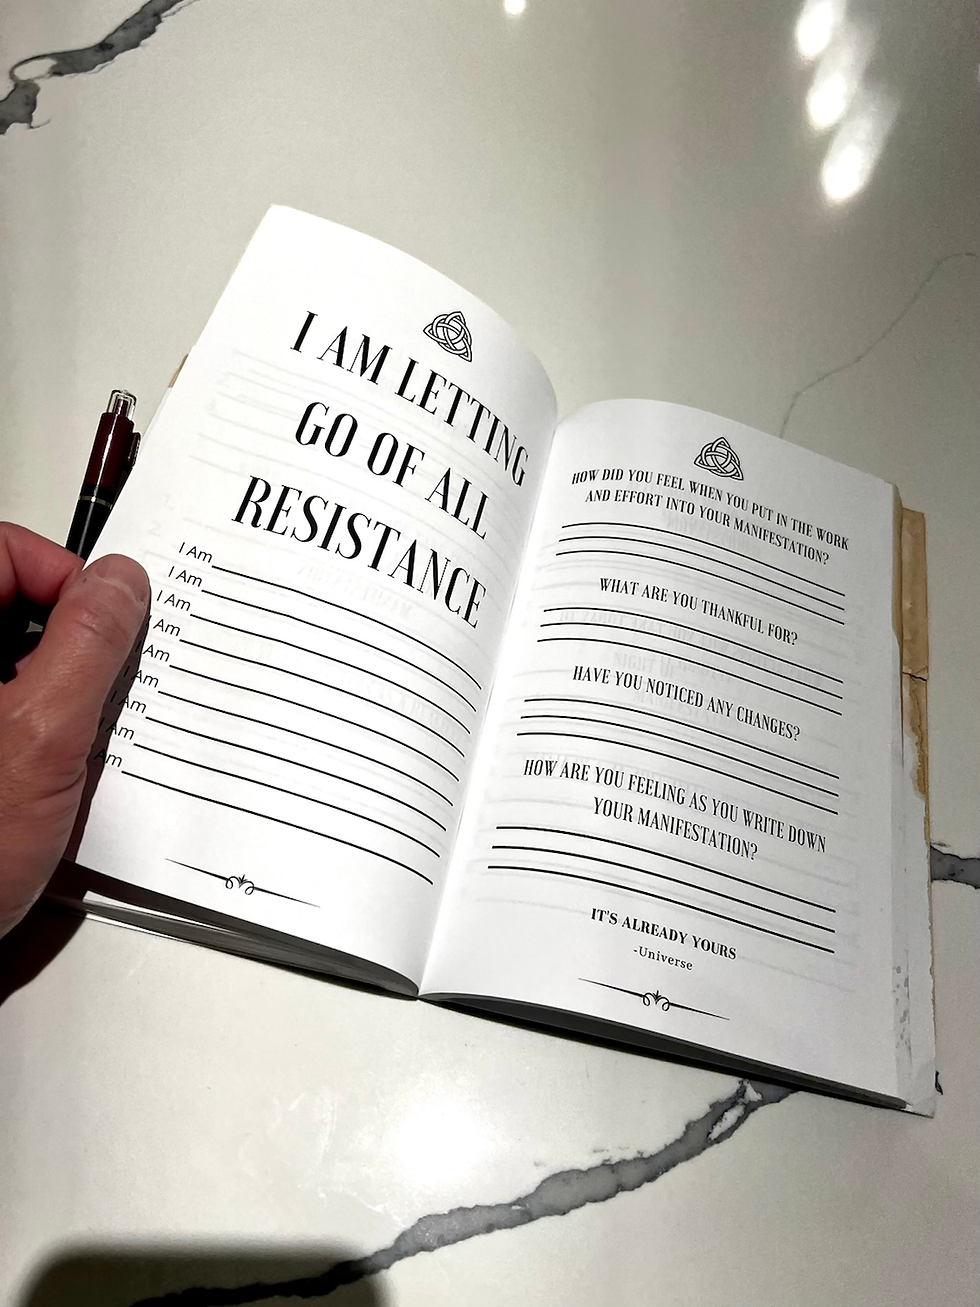 I AM LETTING
GO OF ALL
RESISTANCE
I Am
I Am
I Am
I Am
I Am
I Am
I Am
I Am
Am
HOW DID YOU FEEL WHEN YOU PUT IN THE WORK
AND EFFORT INTO YOUR MANIFESTATION?
WHAT ARE YOU THANKFUL FOR?
HAVE YOU NOTICED ANY CHANGES?
HOW ARE YOU FEELING AS YOU WRITE DOWN
YOUR MANIFESTATION?
IT'S ALREADY YOURS
-Universe